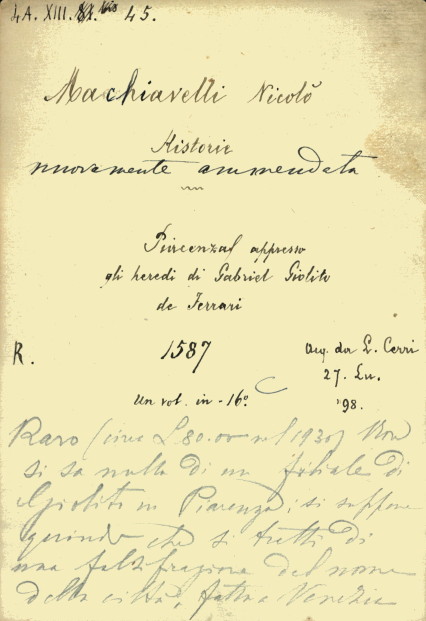 4A. XIII. bis 45.
Machiavelli Nicolò
Historie
nuovamente ammendata
Piacenza appresso
gli heredi di Gabriel Giolito
de Ferrari
R.
1587
Aug. da L. Cerri
27. Lu.
'98.
Un vol. in-16°.
Raro (circa L 80.00 nel 1930) Non
si sa nulla di un filiale di
Gioliti in Piacenza; si suppone
quindi che si tratti di
una falsifrazione del nome
della città, fatta a Venezia